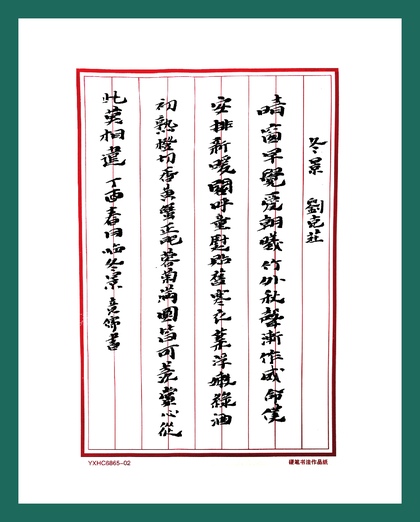 冬景 劉克莊
晴窗早覺愛朝曦竹外秋聲漸作威命僕
安排新暖閣呼童熨貼舊寒衣葉浮嫩綠酒
初熟橙切香黃蟹正肥蓉菊滿園皆可羨賞心從
此莫相違 丁酉春日臨冬景 書
YXHC6865-02
硬笔书法作品纸